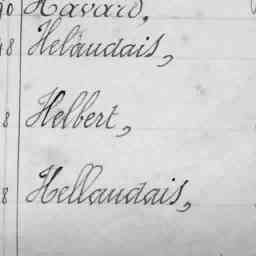 90 Havard,
8 Helaudais,
8 Helbert,
8 Hellaudais,